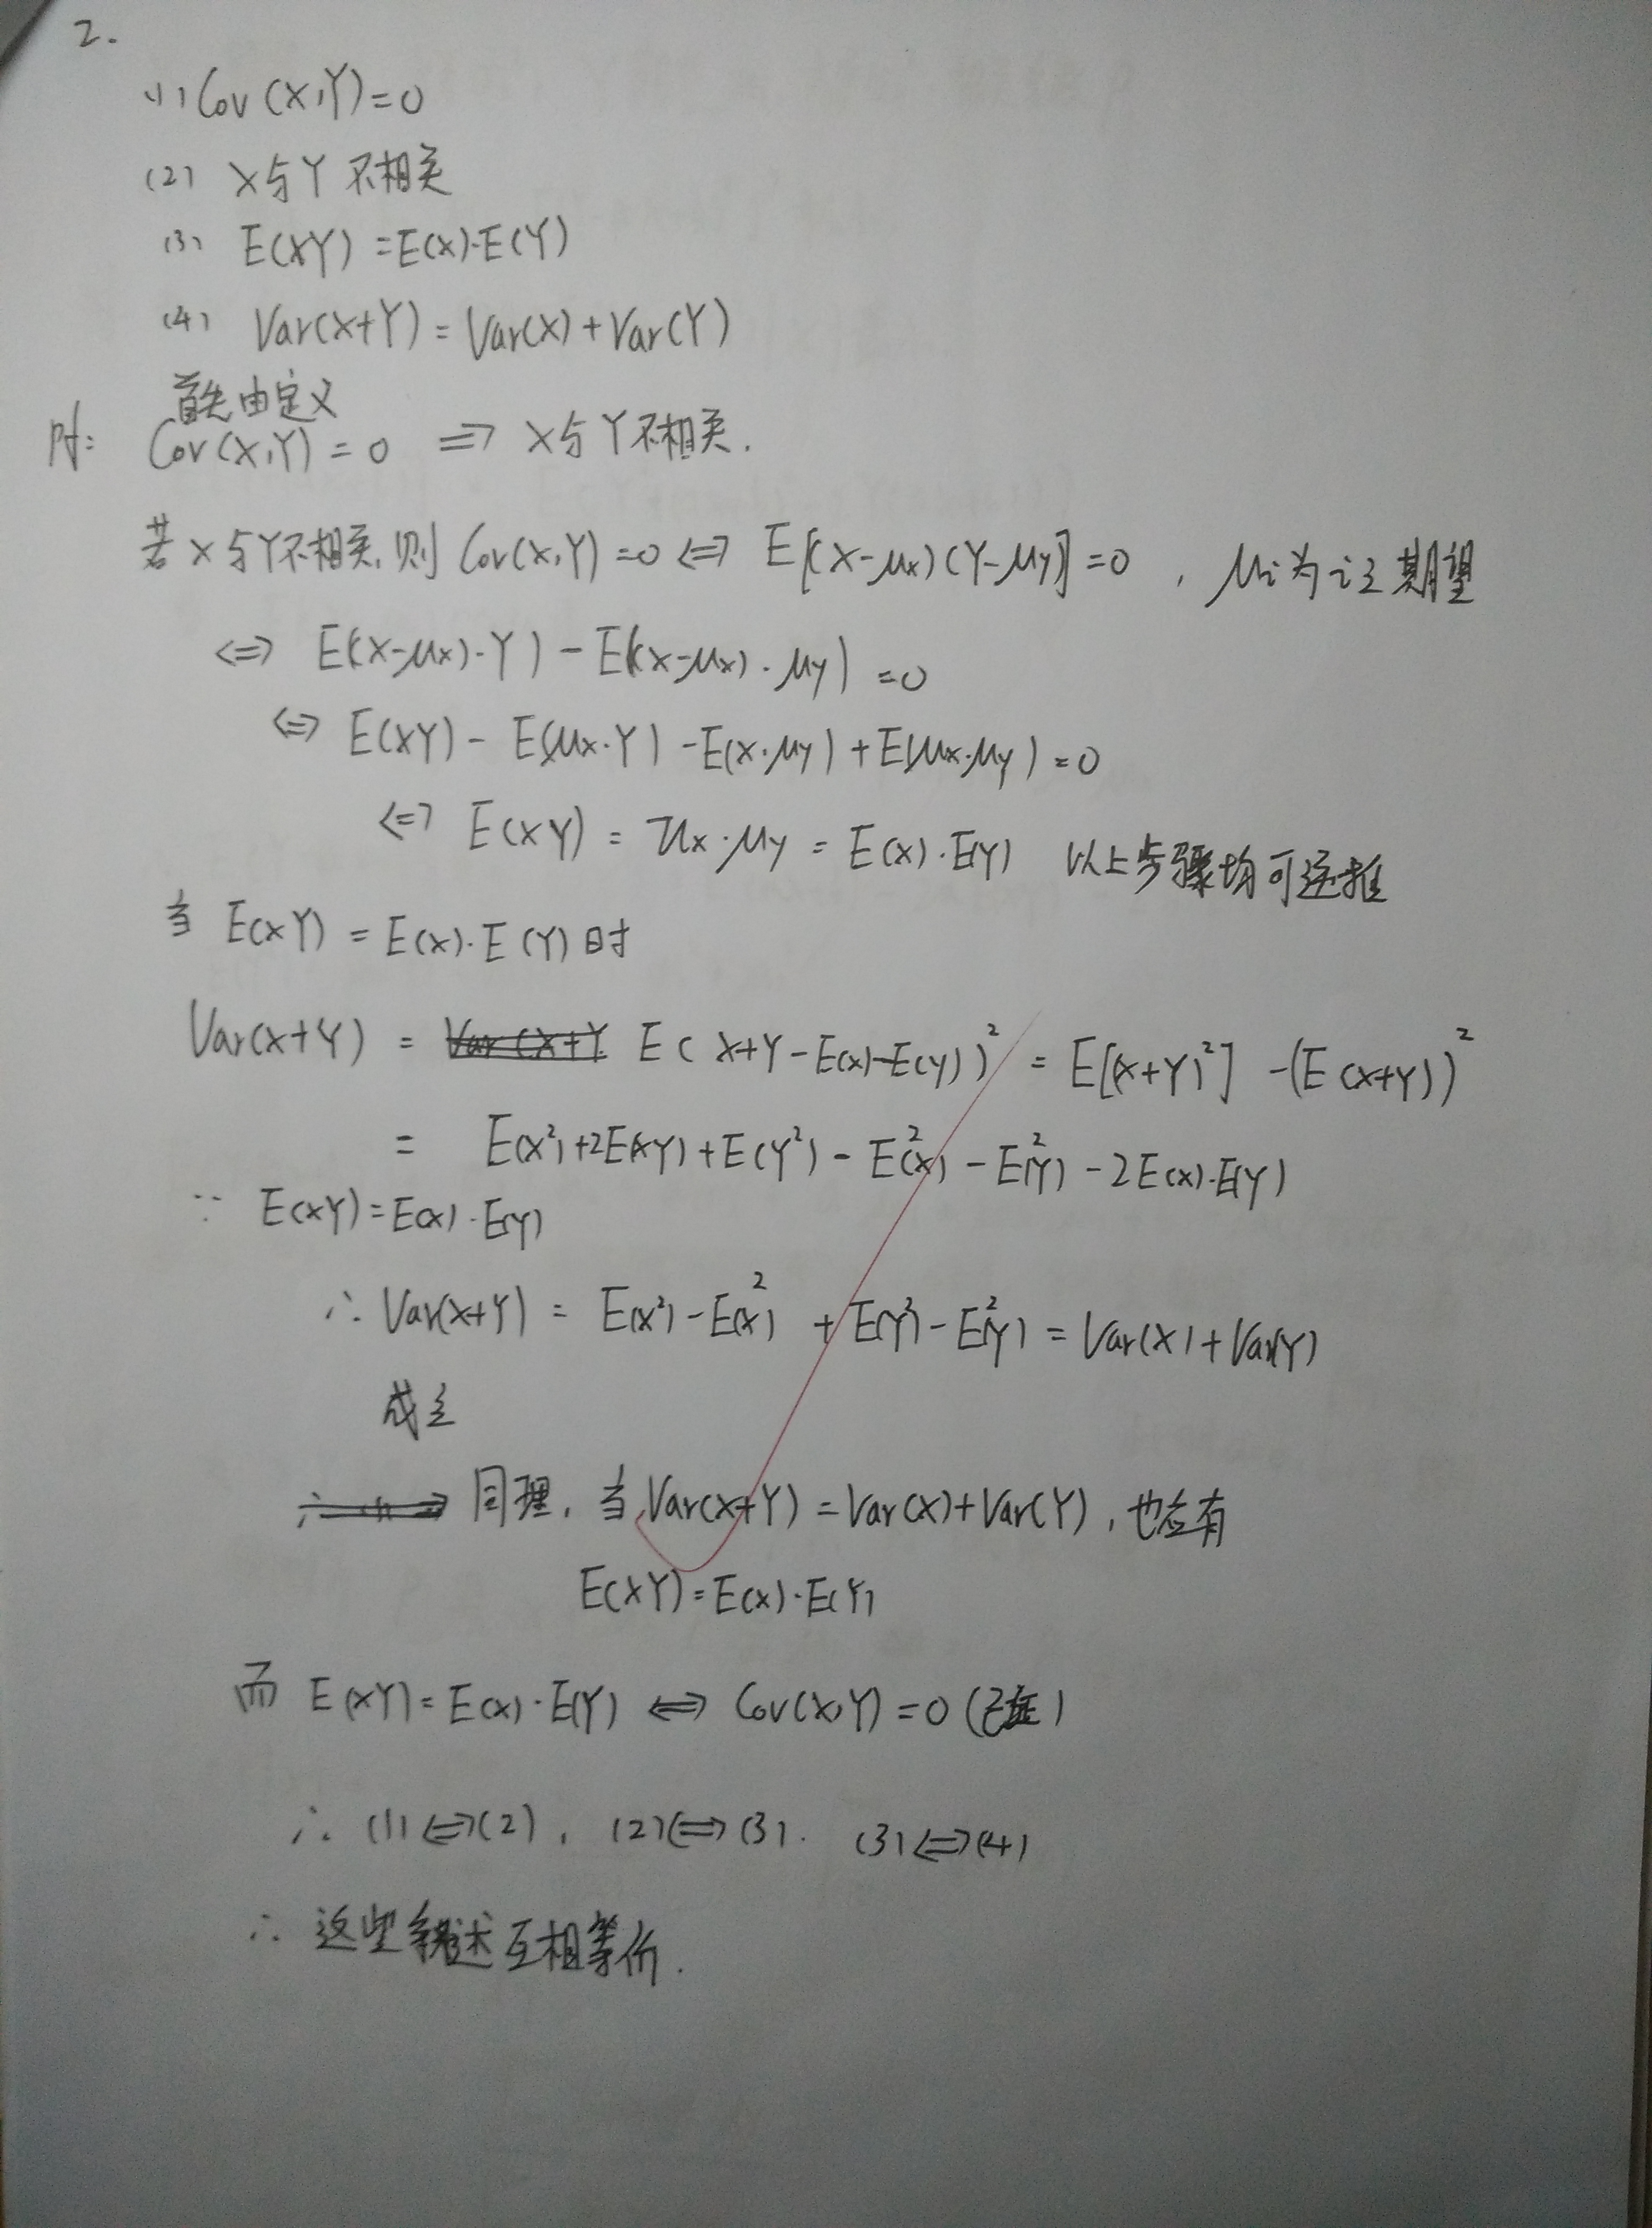 2.
(1) Cov(X,Y)=0
(2) X与Y 不相关
(3) E(XY)=E(X)·E(Y)
(4) Var(X+Y)=Var(X)+Var(Y)
首先由定义
Cov(X,Y)=0 ⇒ X与Y不相关.
若X与Y不相关,则 Cov(X,Y)=0 ⇔ E[(X-μx)(Y-μy)]=0 , μi为i之期望
⇔ E((X-μx)·Y) - E((X-μx)·μy) =0
⇔ E(XY) - E(μx·Y) - E(X·μy) + E(μx·μy) =0
⇔ E(XY) = μx·μy = E(X)·E(Y) 以上步骤均可逆推
当 E(XY) = E(X)·E(Y)时
Var(X+Y) = E(X+Y-E(X)-E(Y))² = E[(X+Y)²] -(E(X+Y))²
= E(X²)+2E(XY)+E(Y²) - E²(X) - E²(Y) - 2E(X)·E(Y)
∵ E(XY)=E(X)·E(Y)
∴ Var(X+Y) = E(X²)-E²(X) + E(Y²)-E²(Y) = Var(X)+Var(Y)
成立
同理, 当Var(X+Y)=Var(X)+Var(Y), 也应有
E(XY)=E(X)·E(Y)
而 E(XY)=E(X)·E(Y) ⇔ Cov(X,Y)=0 (已证)
∴ (1)⇔(2), (2)⇔(3). (3)⇔(4)
∴ 这些叙述互相等价.